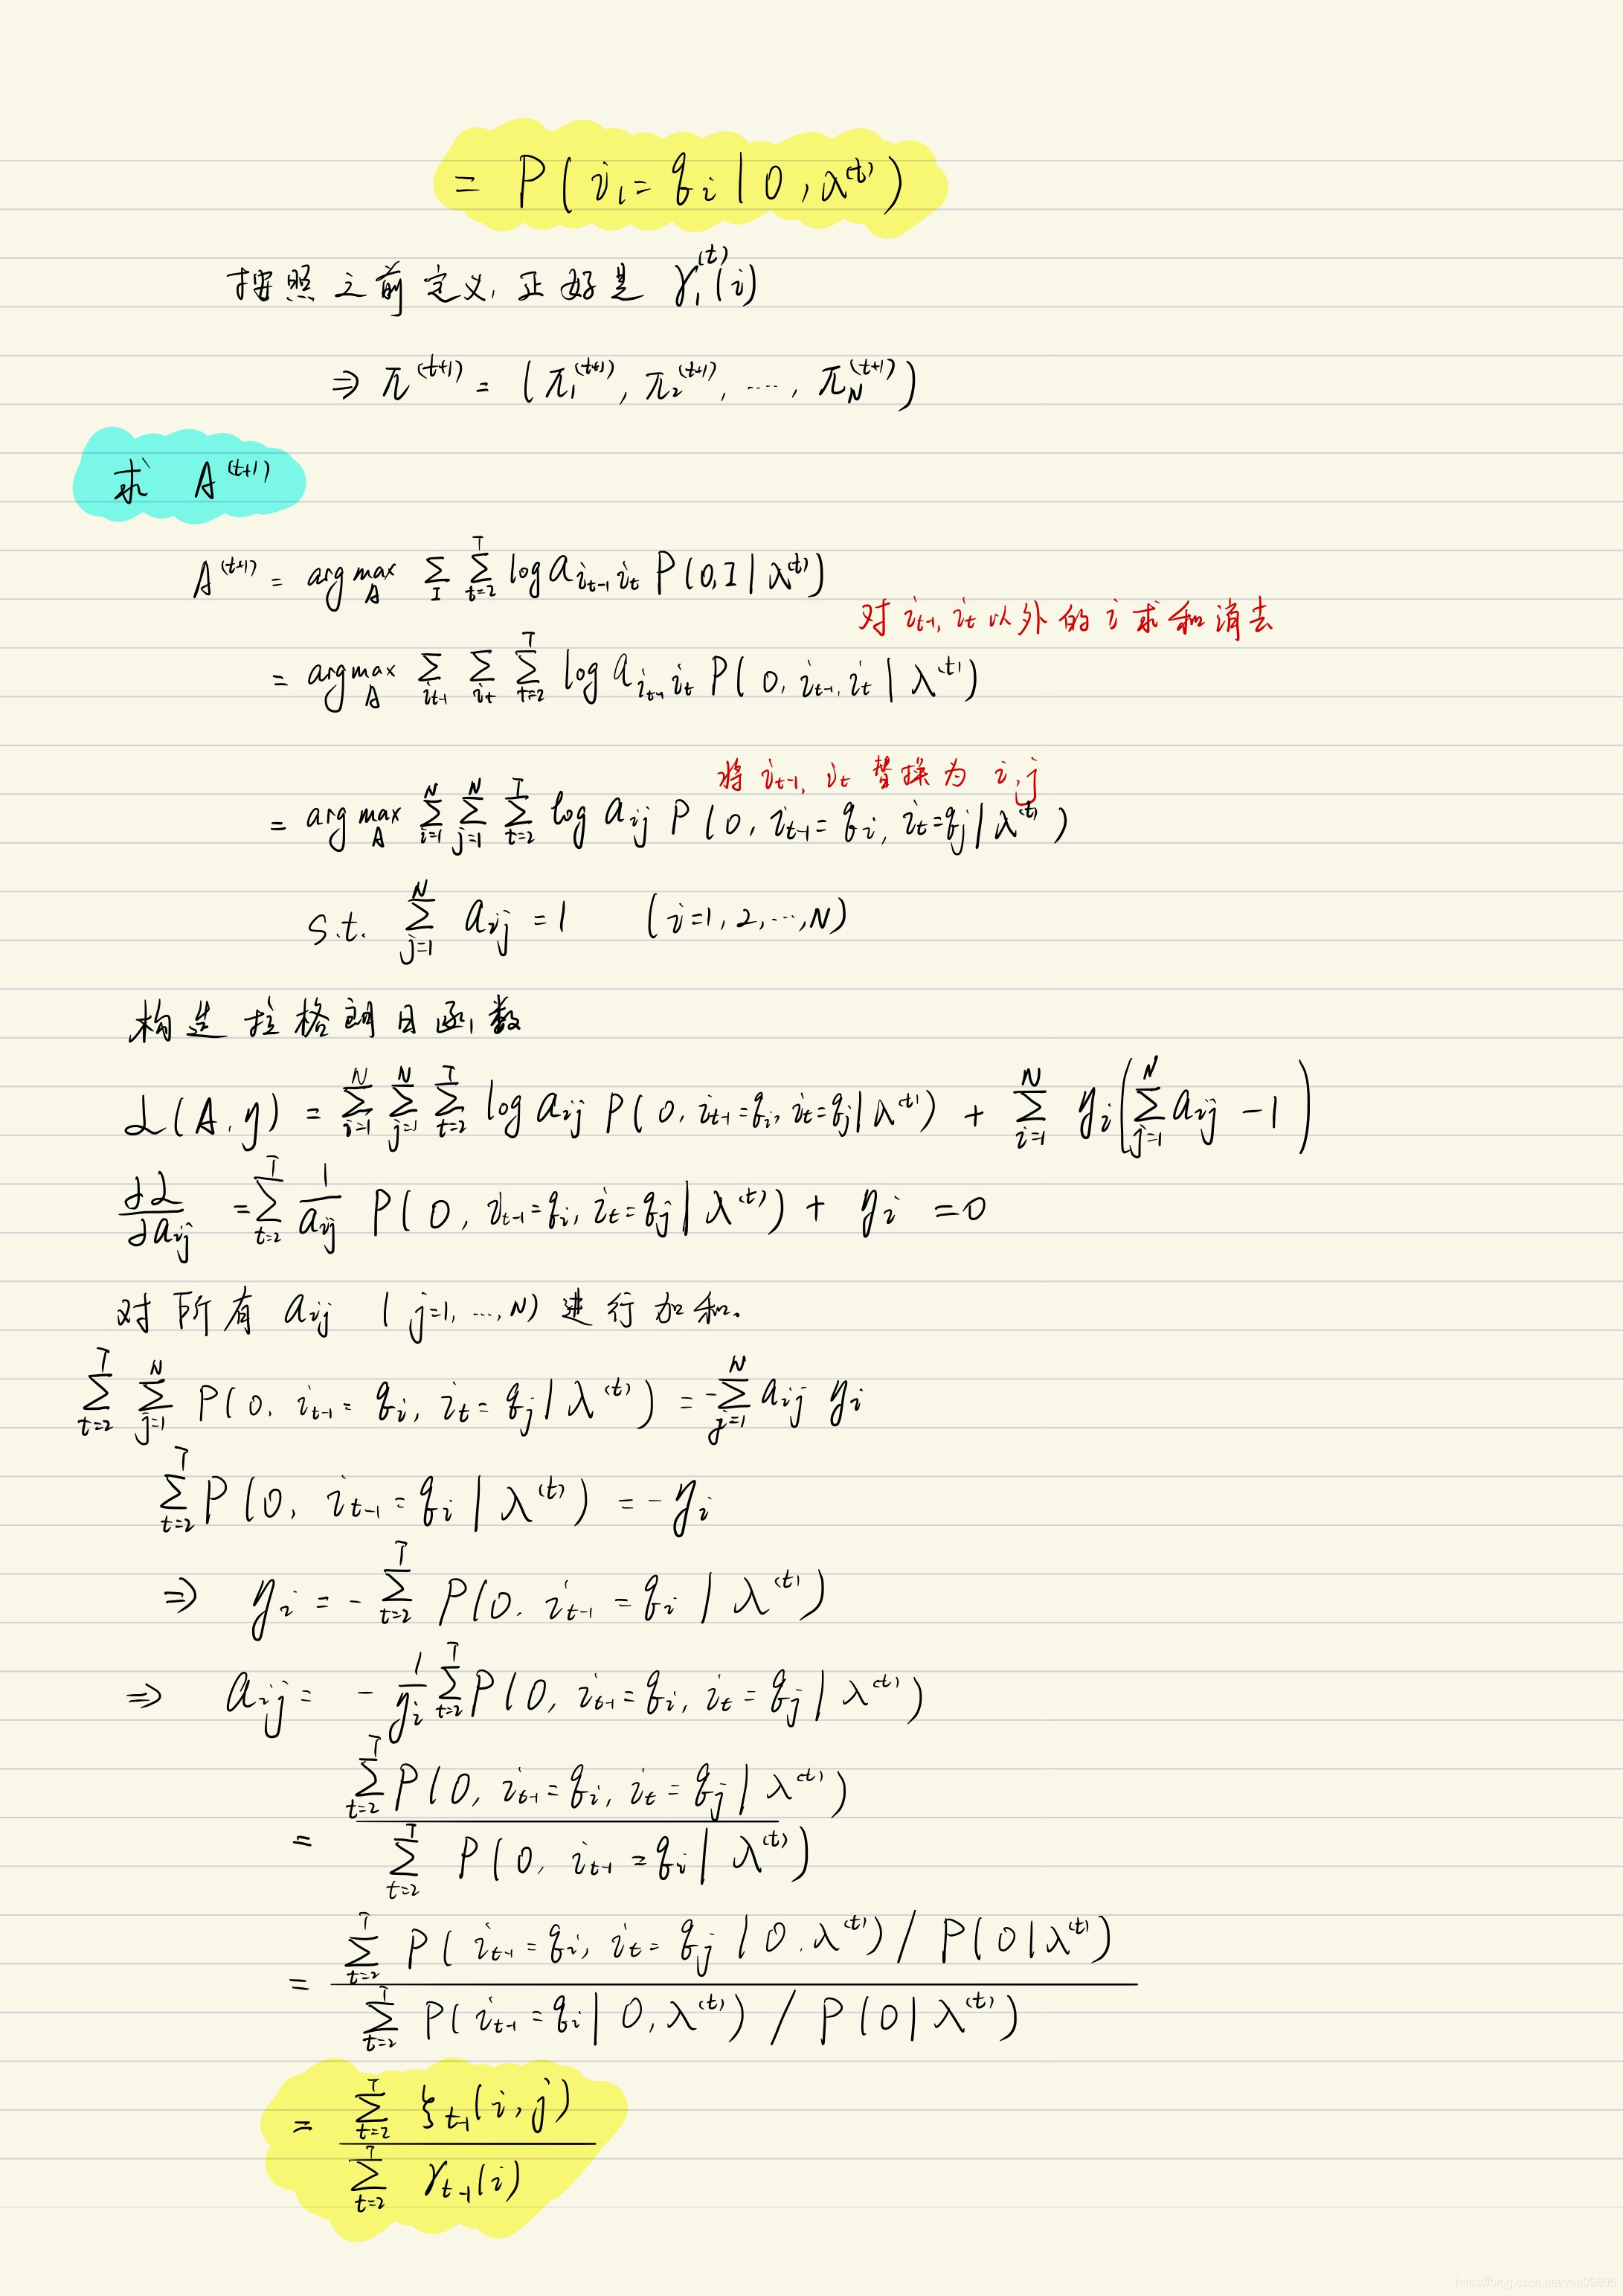 = P(i₁ = qᵢ | O, λ⁽ᵗ⁾)
按照之前定义, 正好是 γ₁⁽ᵗ⁾(i)
⇒ π⁽ᵗ⁺¹⁾ = (π₁⁽ᵗ⁺¹⁾, π₂⁽ᵗ⁺¹⁾, ⋯, π_N⁽ᵗ⁺¹⁾)
求 A⁽ᵗ⁺¹⁾
A⁽ᵗ⁺¹⁾ = arg max_A Σ_I Σ_{t=2}^T log a_{i_{t-1} i_t} P(O, I | λ⁽ᵗ⁾)
对 i_{t-1}, i_t 以外的 i 求和消去
= arg max_A Σ_{i_{t-1}} Σ_{i_t} Σ_{t=2}^T log a_{i_{t-1} i_t} P(O, i_{t-1}, i_t | λ⁽ᵗ⁾)
将 i_{t-1}, i_t 替换为 i, j
= arg max_A Σ_{i=1}^N Σ_{j=1}^N Σ_{t=2}^T log a_{ij} P(O, i_{t-1} = q_i, i_t = q_j | λ⁽ᵗ⁾)
s.t. Σ_{j=1}^N a_{ij} = 1 (i=1, 2, ⋯, N)
构造拉格朗日函数
L(A, η) = Σ_{i=1}^N Σ_{j=1}^N Σ_{t=2}^T log a_{ij} P(O, i_{t-1} = q_i, i_t = q_j | λ⁽ᵗ⁾) + Σ_{i=1}^N η_i (Σ_{j=1}^N a_{ij} - 1)
∂L/∂a_{ij} = Σ_{t=2}^T 1/a_{ij} P(O, i_{t-1} = q_i, i_t = q_j | λ⁽ᵗ⁾) + η_i = 0
对所有 a_{ij} (j=1, ⋯, N) 进行加和。
Σ_{t=2}^T Σ_{j=1}^N P(O, i_{t-1} = q_i, i_t = q_j | λ⁽ᵗ⁾) = -Σ_{j=1}^N a_{ij} η_i
Σ_{t=2}^T P(O, i_{t-1} = q_i | λ⁽ᵗ⁾) = -η_i
⇒ η_i = - Σ_{t=2}^T P(O, i_{t-1} = q_i | λ⁽ᵗ⁾)
⇒ a_{ij} = - 1/η_i Σ_{t=2}^T P(O, i_{t-1} = q_i, i_t = q_j | λ⁽ᵗ⁾)
Σ_{t=2}^T P(O, i_{t-1} = q_i, i_t = q_j | λ⁽ᵗ⁾)
= Σ_{t=2}^T P(O, i_{t-1} = q_i | λ⁽ᵗ⁾)
Σ_{t=2}^T P(i_{t-1} = q_i, i_t = q_j | O, λ⁽ᵗ⁾) / P(O | λ⁽ᵗ⁾)
= Σ_{t=2}^T P(i_{t-1} = q_i | O, λ⁽ᵗ⁾) / P(O | λ⁽ᵗ⁾)
Σ_{t=2}^T ξ_{t-1}(i, j)
= Σ_{t=2}^T γ_{t-1}(i)
https://blog.csdn.net/yao09605